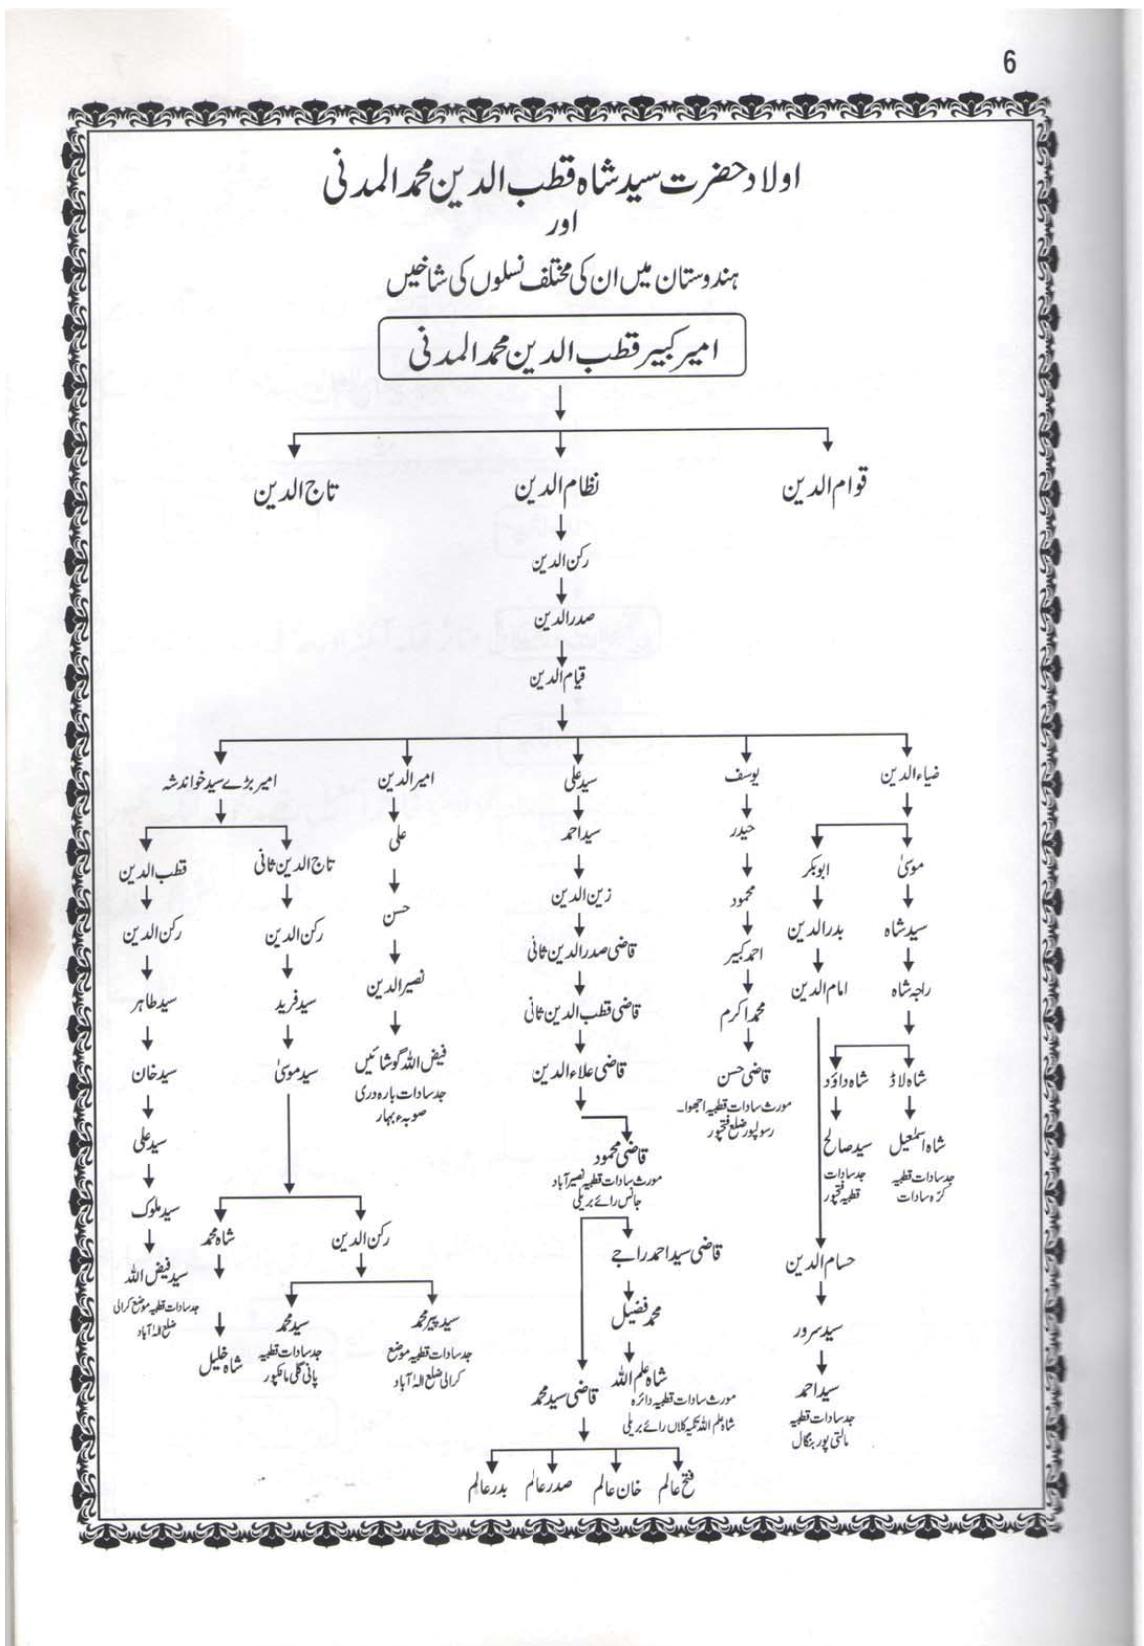 6
اولاد حضرت سید شاہ قطب الدین محمد المدنی
اور
ہندوستان میں ان کی مختلف نسلوں کی شاخیں
امیر کبیر قطب الدین محمد المدنی
قوام الدین
نظام الدین
تاج الدین
رکن الدین
صدر الدین
قیام الدین
ضیاء الدین
یوسف
سید علی
امیر الدین
امیر بڑے سید خواندشہ
موسیٰ
سید شاہ
راجہ شاہ
شاہ لاڈ
شاہ اسمٰعیل
جد سادات قطبیہ
کڑہ سادات
شاہ داؤد
سید صالح
جد سادات
قطبیہ فتحپور
ابو بکر
بدر الدین
امام الدین
حسام الدین
سید سرور
سید احمد
جد سادات قطبیہ
مالتی پور بنگال
حیدر
محمود
احمد کبیر
محمد اکرم
قاضی حسن
مورث سادات قطبیہ اجھوا۔
رسولپور ضلع فتحپور
سید احمد
زین الدین
قاضی صدر الدین ثانی
قاضی قطب الدین ثانی
قاضی علاء الدین
قاضی محمود
مورث سادات قطبیہ نصیر آباد
جائس رائے بریلی
قاضی سید احمد راجے
محمد فضیل
شاہ علم اللہ
مورث سادات قطبیہ دائرہ
شاہ علم اللہ تکیہ کلاں رائے بریلی
قاضی سید محمد
فتح عالم
خان عالم
صدر عالم
بدر عالم
علی
حسن
نصیر الدین
فیض اللہ گوشائیں
جد سادات بارہ دری
صوبہء بہار
تاج الدین ثانی
رکن الدین
سید فرید
سید موسیٰ
رکن الدین
شاہ محمد
سید پیر محمد
جد سادات قطبیہ موضع
کرالی ضلع الہٰ آباد
سید محمد
جد سادات قطبیہ
پانی گلی مانکپور
شاہ خلیل
قطب الدین
رکن الدین
سید طاہر
سید خان
سید علی
سید ملوک
سید فیض اللہ
جد سادات قطبیہ موضع کرالی
ضلع الہٰ آباد